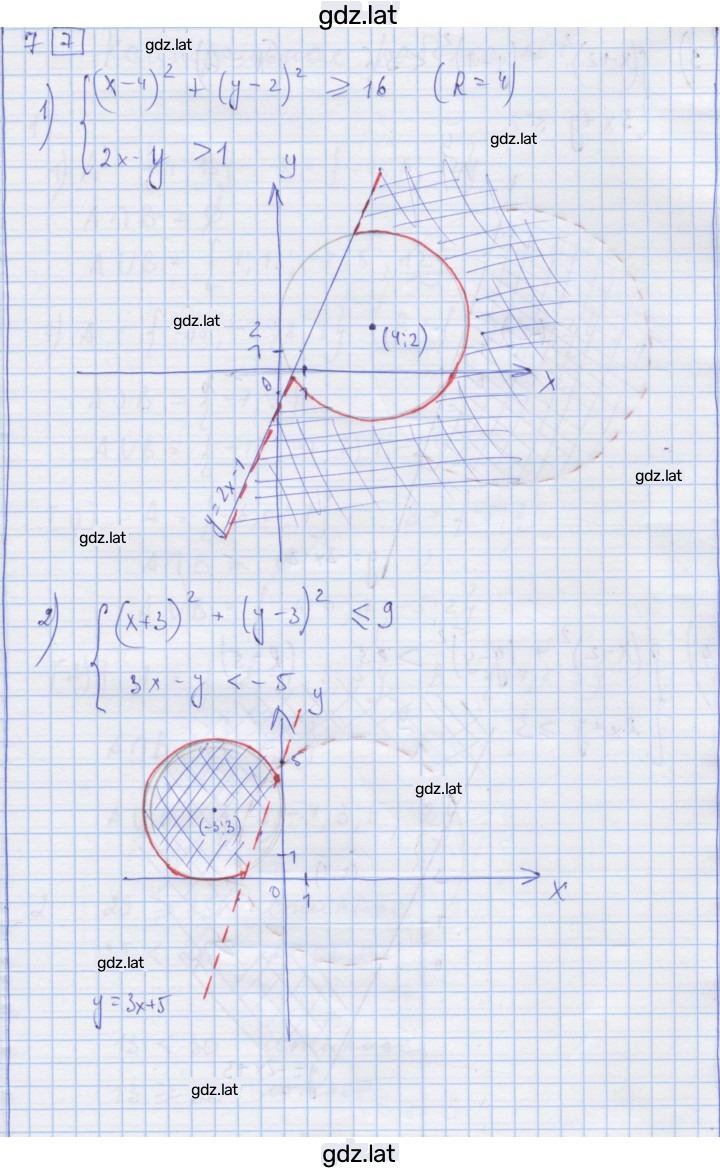 gdz.lat
7 7
gdz.lat
1) { (x-4)² + (y-2)² ⩾ 16 (R = 4)
gdz.lat
2x - y > 1
y
gdz.lat
2
1
(4; 2)
0
1
x
gdz.lat
y = 2x - 1
gdz.lat
2) { (x+3)² + (y-3)² ⩽ 9
3x - y < -5
y
5
gdz.lat
(-3; 3)
1
0
1
x
gdz.lat
y = 3x+5
gdz.lat
gdz.lat